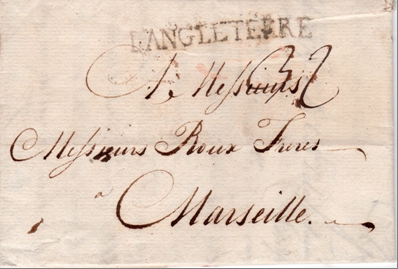 D'ANGLETERRE
A Messieurs 32
Messieurs Roux Freres
a
Marseille.